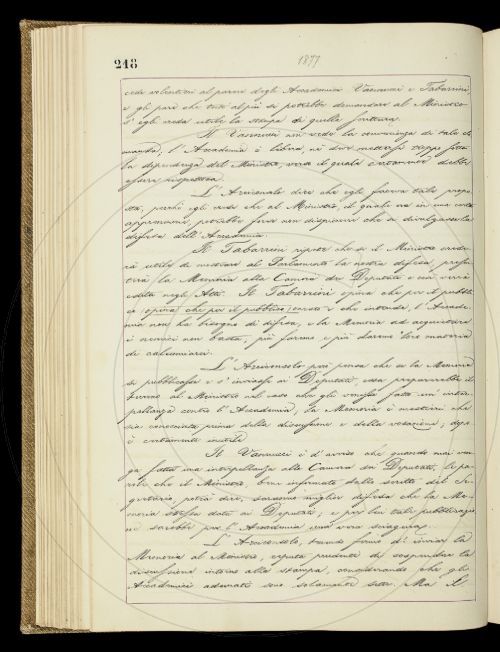 248
1877
cede volentieri al parere degli Accademici Vannucci e Tabarrini,
e gli pare che tutt'al più si potrebbe domandare al Ministro
s'egli creda utile la stampa di quella scrittura.
Il Vannucci non vede la convenienza di tale do-
manda; l'Accademia è libera, nè deve mettersi troppo sotto
la dipendenza del Ministro, verso il quale certamente debb'
essere rispettosa.
L'Arciconsolo dice che egli faceva tale propo-
sta, perchè egli crede che al Ministro, il quale era in una certa
apprensione, potrebbe forse non dispiacere che si divulgasse la
difesa dell'Accademia.
Il Tabarrini ripete che se il Ministro crede-
rà utile di mostrare al Parlamento la nostra difesa, presen-
terà la Memoria alla Camera dei Deputati e così verrà
edita negli Atti. Il Tabarrini opina che per il pubbli-
co (opina che per il pubblico) onesto e che intende, l'Accade-
mia non ha bisogno di difesa, e la Memoria ad acquietare
i nemici non basta, più forme e più daremo loro materia
di calunniarci.
L'Arciconsolo poi pensa che se la Memoria
si pubblicasse e s'inviasse ai Deputati, essa preparerebbe il
terreno al Ministro nel caso che gli venisse fatta un'inter-
pellanza contro l'Accademia; la Memoria è mestieri che
sia conosciuta prima della discussione e della votazione; dopo
è certamente inutile.
Il Vannucci è d'avviso che quando mai ven-
ga fatta una interpellanza alla Camera dei Deputati, le pa-
role che il Ministro, bene informato dallo scritto del Se-
gretario, potrà dire, saranno miglior difesa che la Me-
moria stessa data ai Deputati; e poi tale pubblicazio-
ne sarebbe per l'Accademia una vera sciagura.
L'Arciconsolo, tenendo fermo di inviar la
Memoria al Ministro, reputa prudente di sospendere la
discussione intorno alla stampa, considerando che gli
Accademici adunati sono solamente sette. Ma il